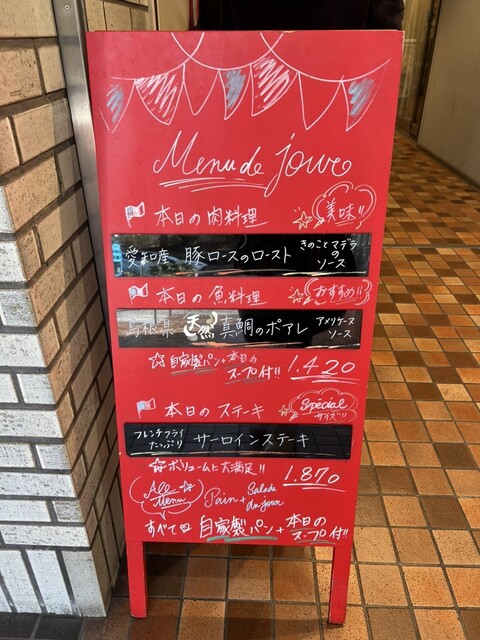 Menu de jour
本日の肉料理
美味!!
愛知産 豚ロースのロースト きのことマデラのソース
本日の魚料理
おすすめ!!
島根県 天然 真鯛のポアレ アメリケーヌソース
自家製パン+本日のスープ付!!
1.420
本日のステーキ
Special サイズ!!
フレンチフライたっぷり サーロインステーキ
ボリュームに大満足!!
1.870
All Menu
Pain + Salade du jour
すべて 自家製パン+本日のスープ付!!